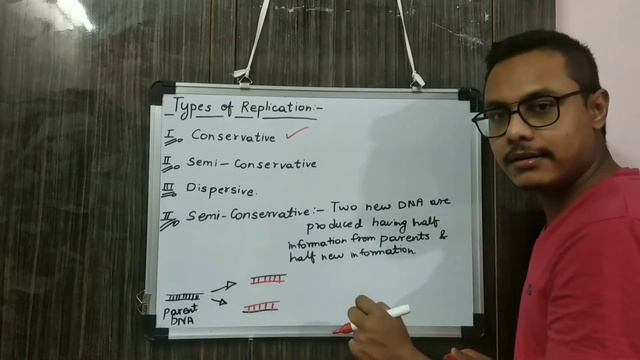 Types of Replication:-
I. Conservative
II. Semi-Conservative
III. Dispersive.
II. Semi-Conservative:- Two new DNA are
produced having half
information from parents &
half new information.
parent
DNA